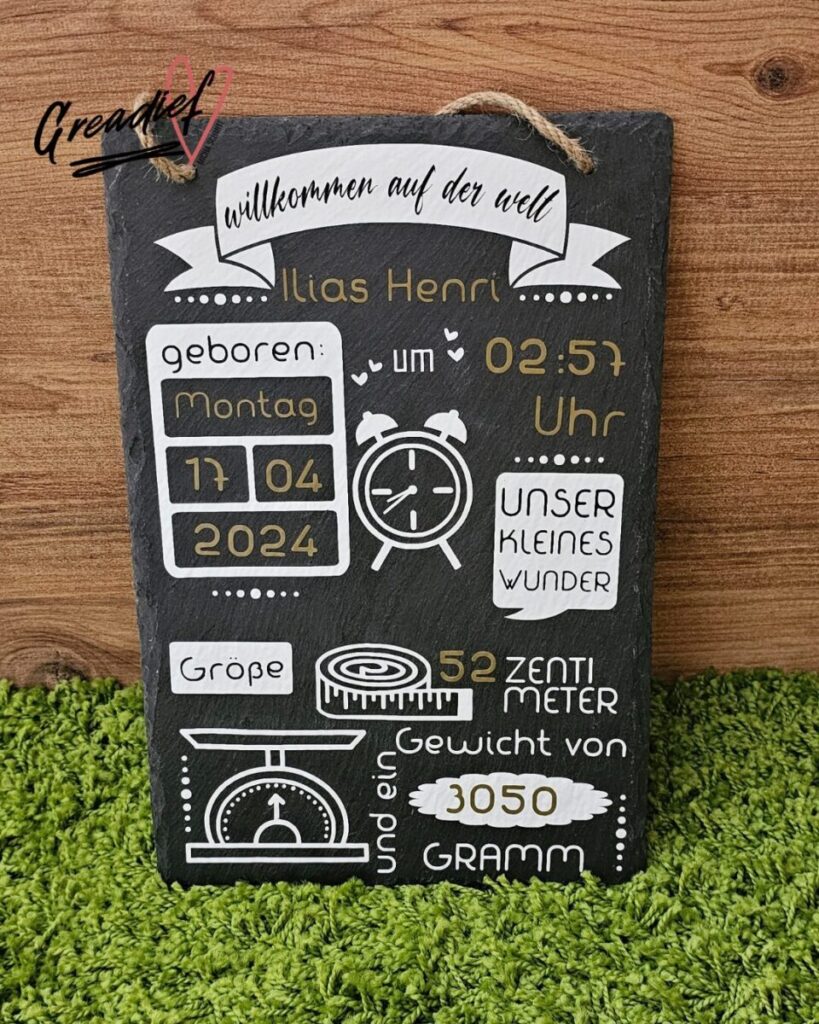 Greadief
willkommen auf der welt
Ilias Henri
geboren:
Montag
17 04
2024
um
02:57
Uhr
UNSER
KLEINES
WUNDER
Größe
52 ZENTI
METER
und ein
Gewicht von
3050
GRAMM